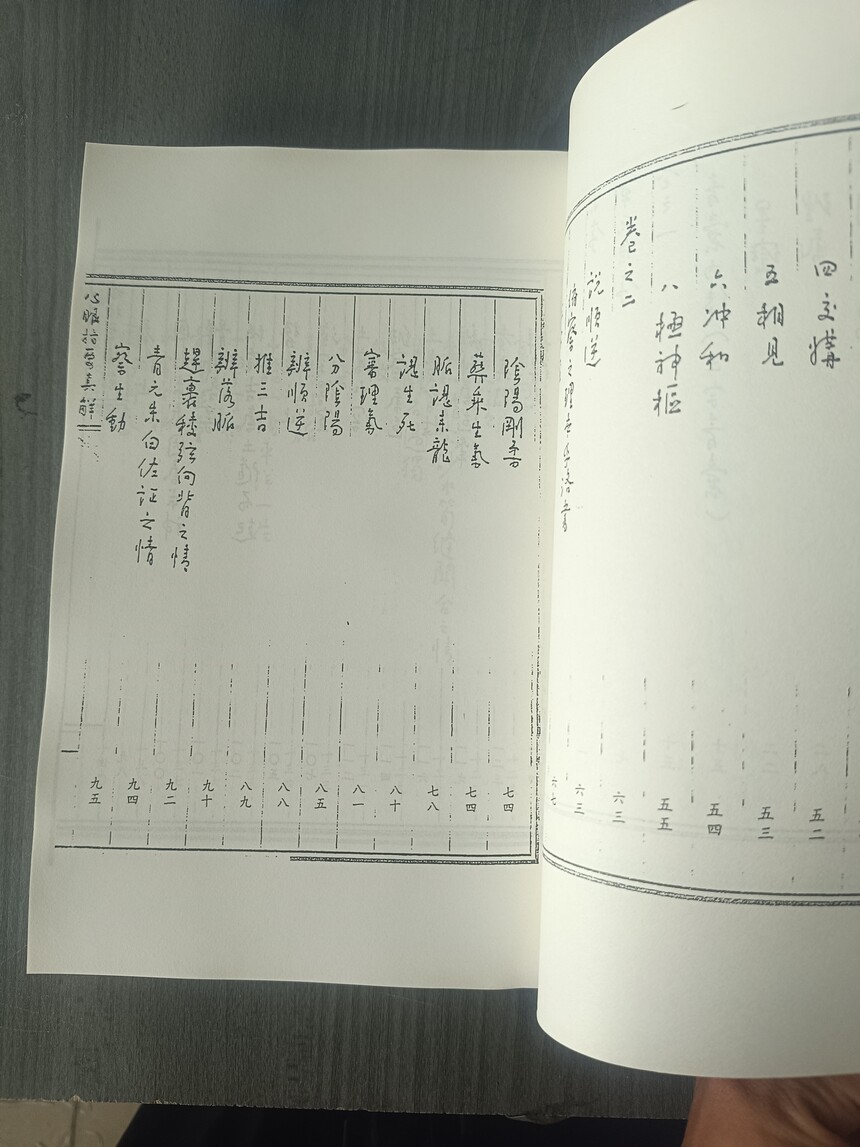 四交媾 五二
五相見 五三
六冲和 五四
八極神樞 五五
卷之二 六三
說順逆 六三
察之理 六七
陰陽剛 七四
葬乘生氣 七四
脈認來龍 七八
認生死 八十
審理氣 八一
分陰陽 八五
辨順逆 八八
推三吉 八九
辨落脈 九十
裏稜弦向背之情 九二
青元朱白佐証之情 九四
察生動 九五
心眼指要真解